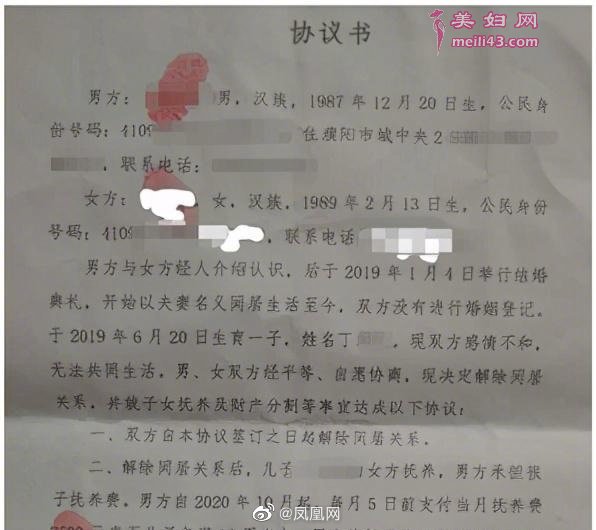 美妇网
meili43.com
协议书
男方：男，汉族，1987年12月20日生，公民身
份号码：4109 住濮阳市城中央2
，联系电话：
女方：，女，汉族，1989年2月13日生，公民身份
号码：4109 ，联系电话
男方与女方经人介绍认识，后于2019年1月4日举行结婚
典礼，开始以夫妻名义同居生活至今，双方没有进行婚姻登记。
于2019年6月20日生育一子，姓名丁，现双方感情不和，
无法共同生活，男、女双方经平等、自愿协商，现决定解除同居
关系，并就子女抚养及财产分割等事宜达成以下协议：
一、双方自本协议签订之日起解除同居关系。
二、解除同居关系后，儿子 女方抚养，男方承担孩
子抚养费。男方自2020年10月起，每月5日前支付当月抚养费
@凤凰网